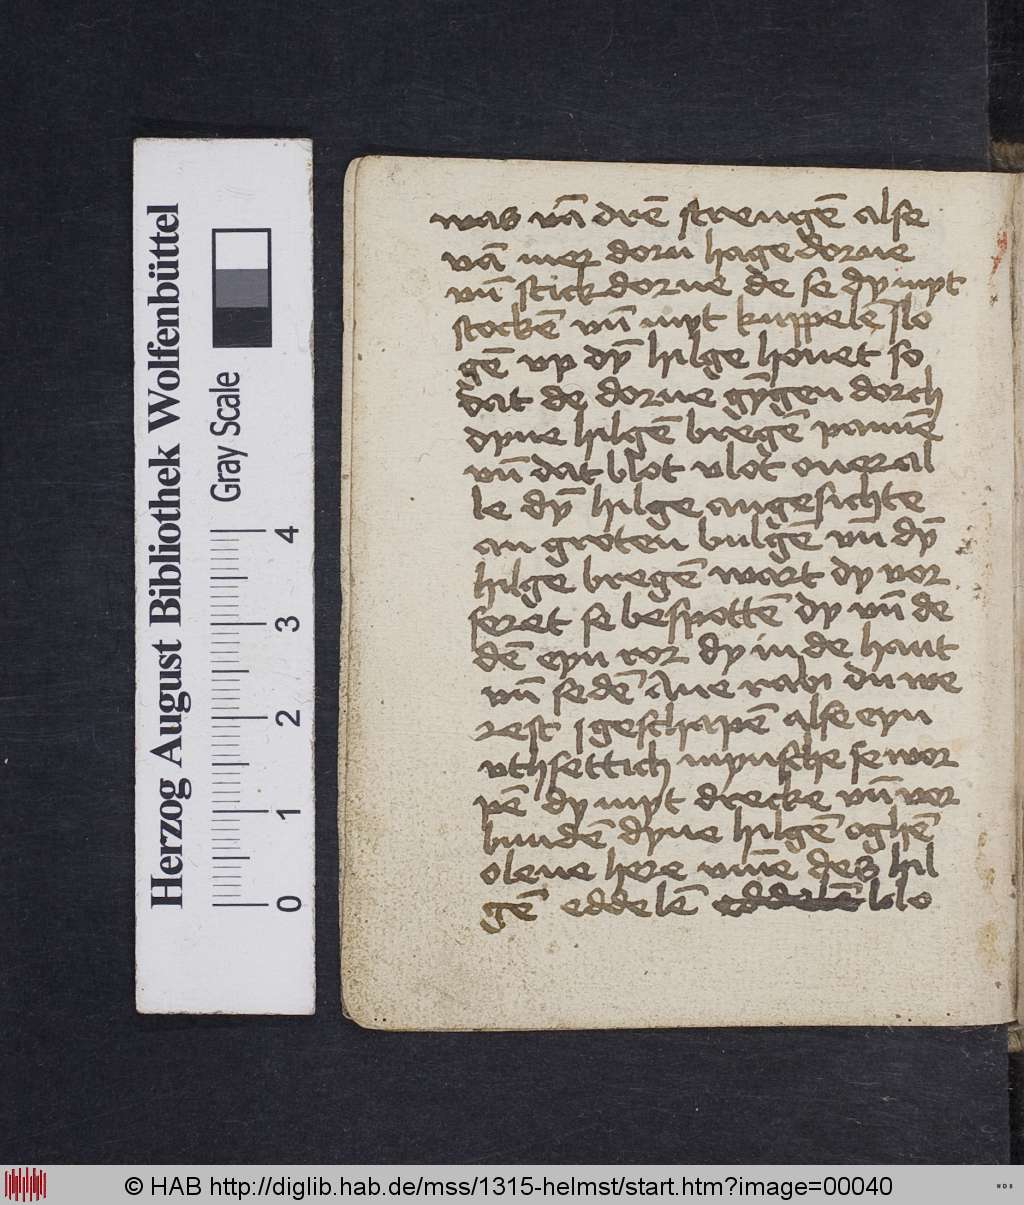 was vā drē strengē alse
vā mer dorn hagedorne
vn̄ stickdorne de se dy myt
stockē vn̄ myt kuppelē slo
gē vp dȳ hilge houet so
dat de dorne gȳgen dorch
dyne hilgē bregē pannē
vn̄ dat blot vlot oueral
le dȳ hilge angesichte
an groten bulgē vn̄ dȳ
hilge bregē wart dy vor
seret se bespottē dy vn̄ de
dē eyn ror dy in de hant
vn̄ sedē Aue rabi du we
rest igeschapē alse eyn
vthsettich mynsche se wor
pē dy myt drecke vn̄ vor
bundē dyne hilgē oghē
O leue here vm̄e des hil
gē eddelē blo
Herzog August Bibliothek Wolfenbüttel
Gray Scale
0 1 2 3 4
© HAB http://diglib.hab.de/mss/1315-helmst/start.htm?image=00040